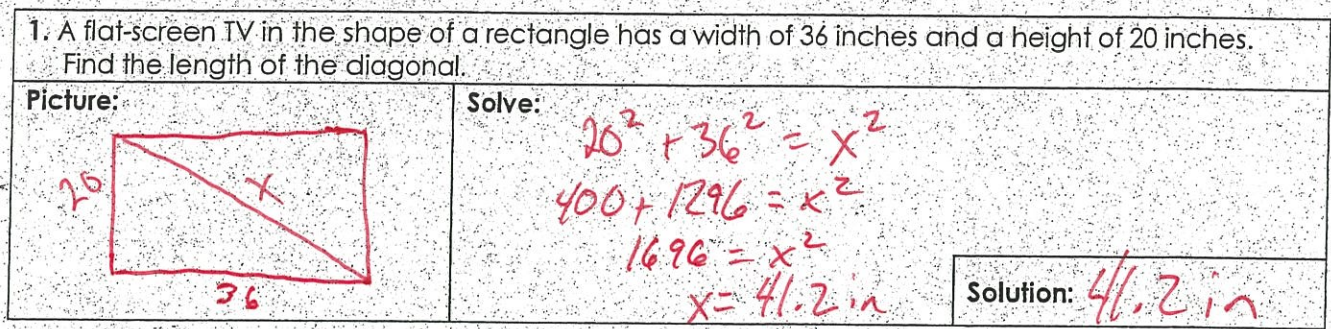 1. A flat-screen TV in the shape of a rectangle has a width of 36 inches and a height of 20 inches.
Find the length of the diagonal.
Picture:
20
x
36
Solve:
20² + 36² = x²
400 + 1296 = x²
1696 = x²
x = 41.2 in
Solution: 41.2 in